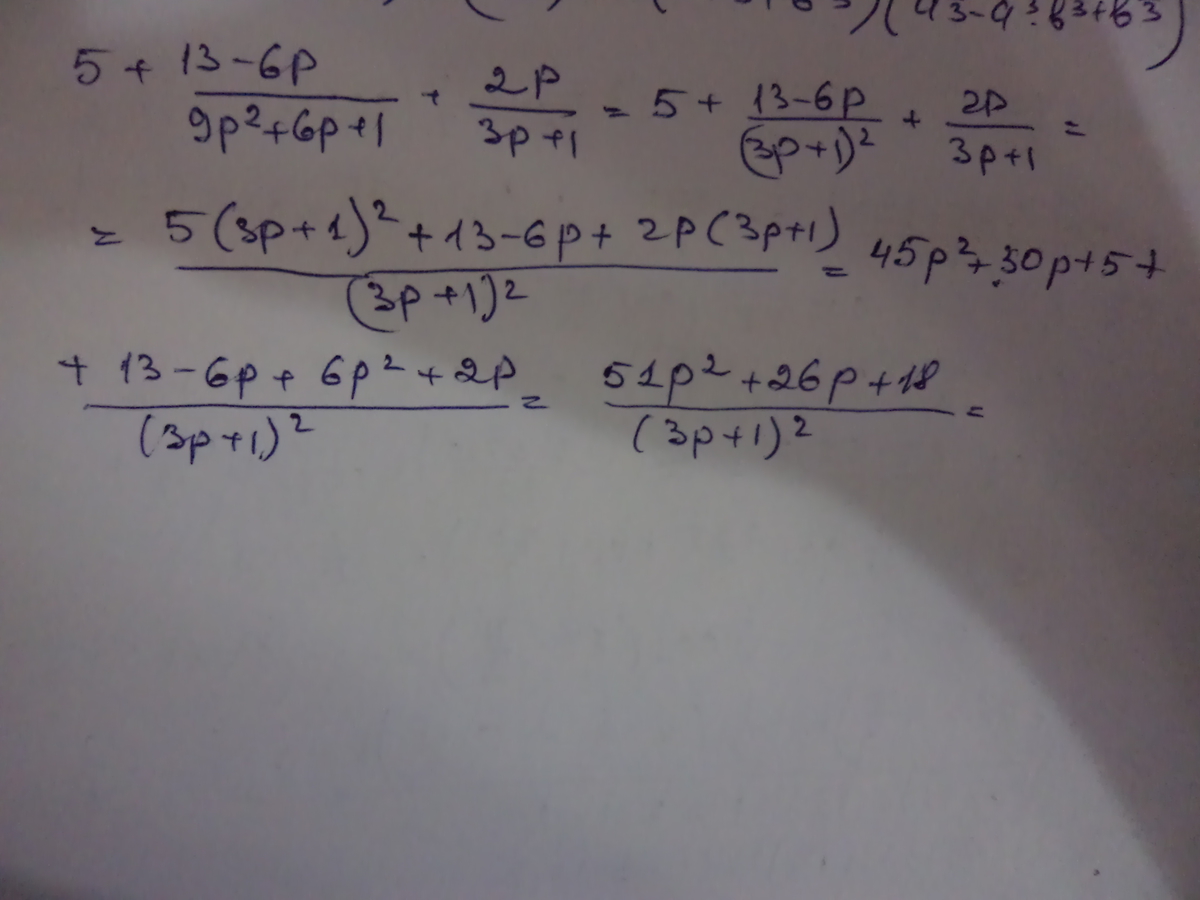 )(a³-a³b³+b³)
5 + (13-6p)/(9p²+6p+1) + 2p/(3p+1) = 5 + (13-6p)/(3p+1)² + 2p/(3p+1) =
= (5(3p+1)²+13-6p+2p(3p+1))/(3p+1)² = 45p²+30p+5+
+ (13-6p+6p²+2p)/(3p+1)² = (51p²+26p+18)/(3p+1)² =